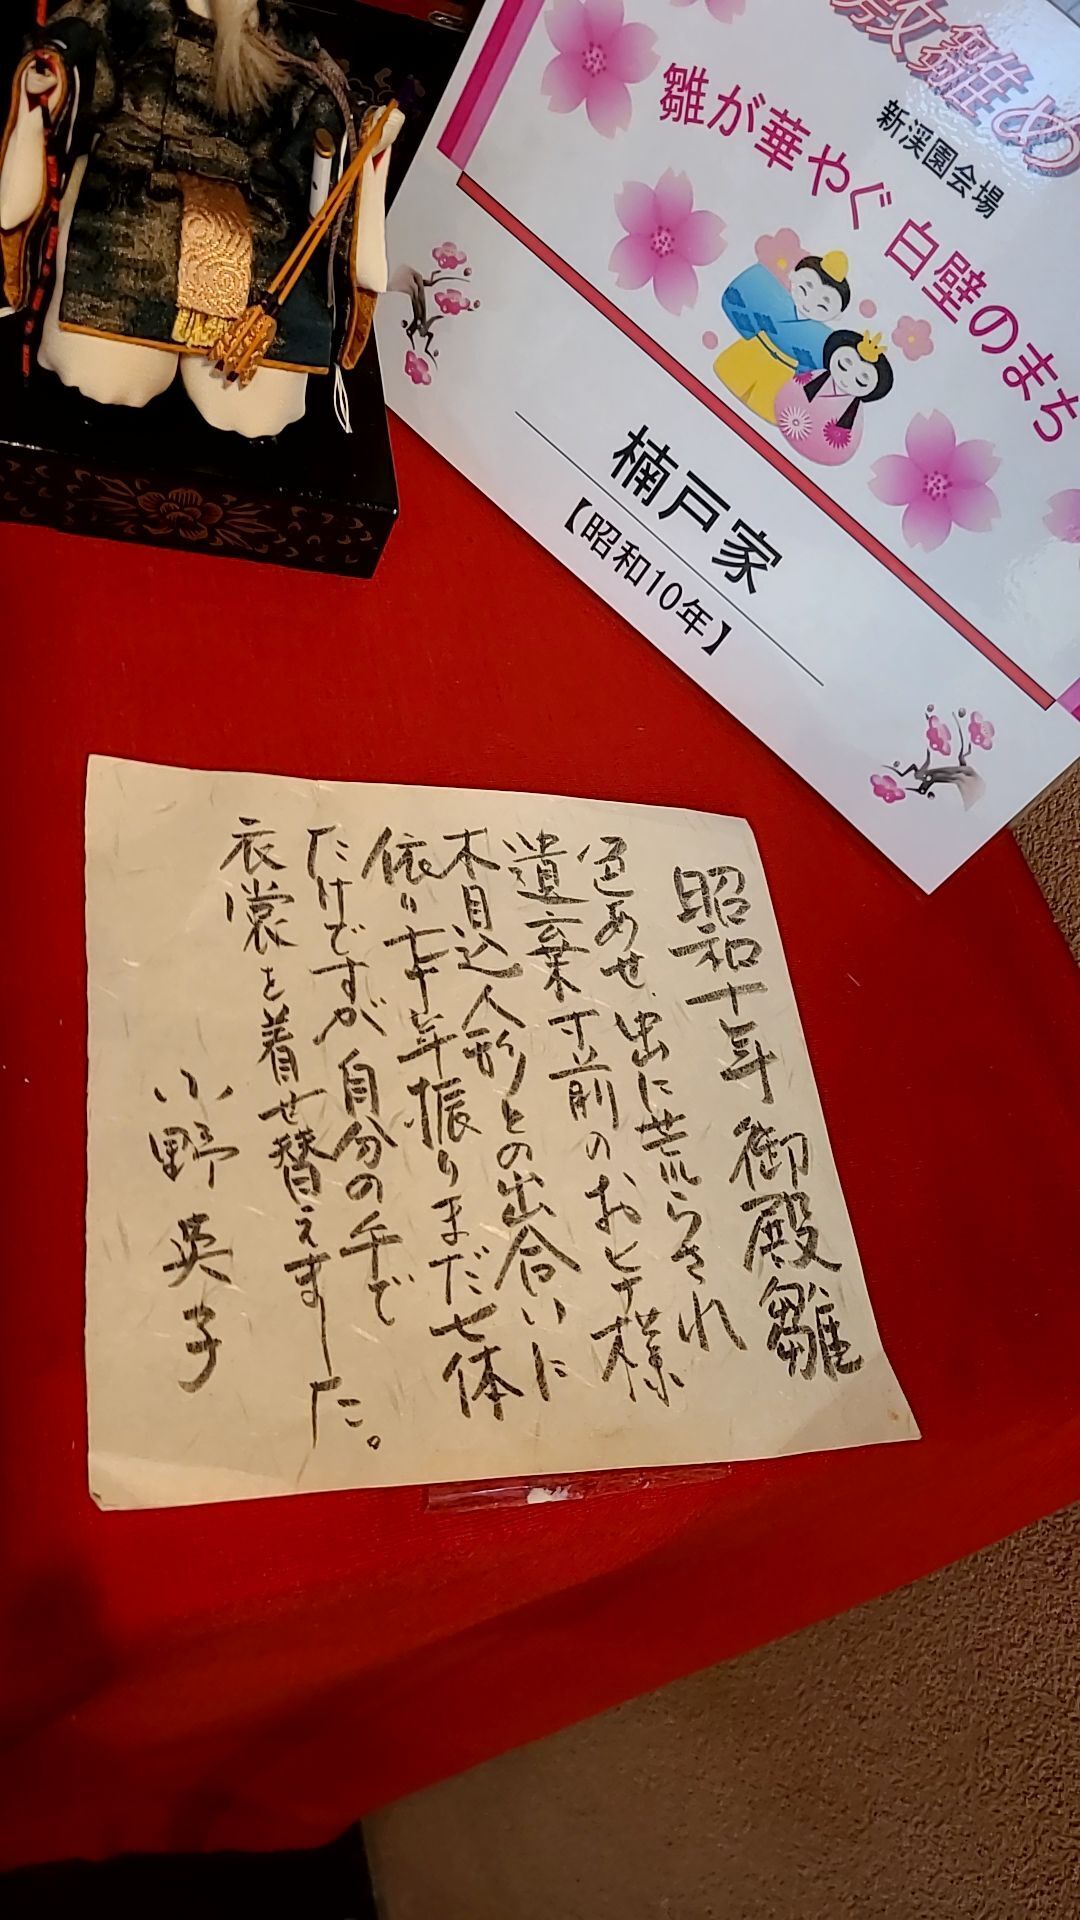 敷雛め
新渓園会場
雛が華やぐ 白壁のまち
楠戸家
【昭和10年】
昭和十年 御殿雛
色あせ 虫に荒らされ
遺棄寸前のおヒナ様
木目込人形との出合いに
依り七十年振りまだ七体
だけですが自分の手で
衣裳を着せ替えました。
小野英子